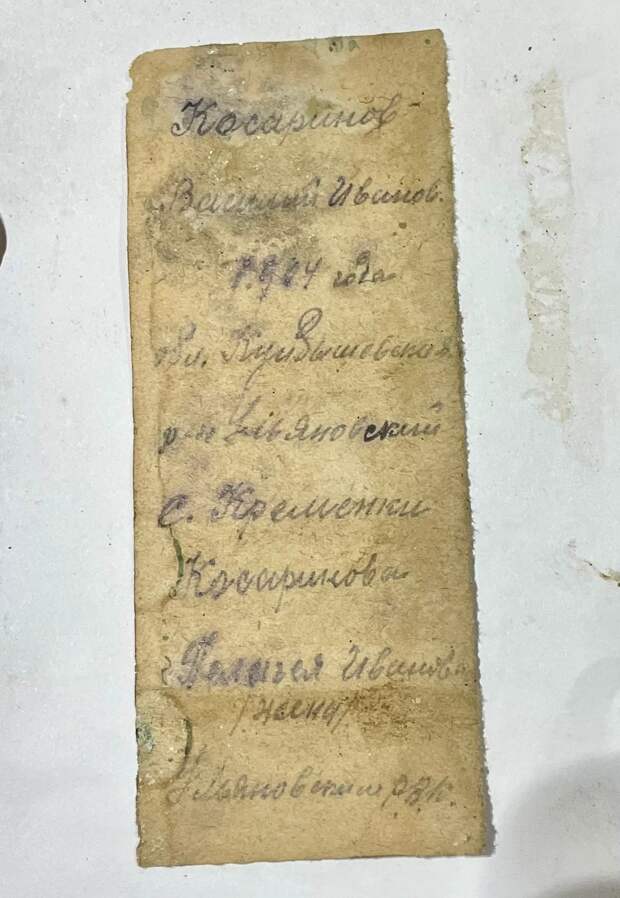 Косаринов
Василий Иванов.
1904 года
обл. Куйбышевская
р-н Ульяновский
с. Кременки
Косаринова
Пелагея Иванов
/жена/
Ульяновским РВК.